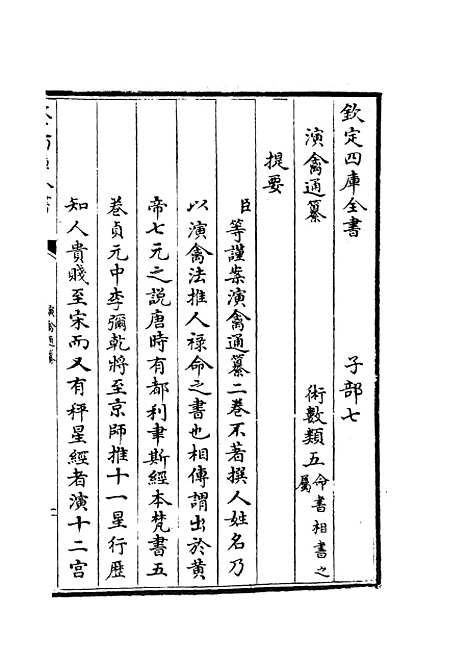 欽定四庫全書 子部七
演禽通纂 術數類五命書相書之屬
提要
臣等謹案演禽通纂二卷不著撰人姓名乃
以演禽法推人祿命之書也相傳謂出於黄
帝七元之說唐時有都利聿斯經本梵書五
卷貞元中李彌乾將至京師推十一星行歷
知人貴賤至宋而又有秤星經者演十二宮
演禽通纂